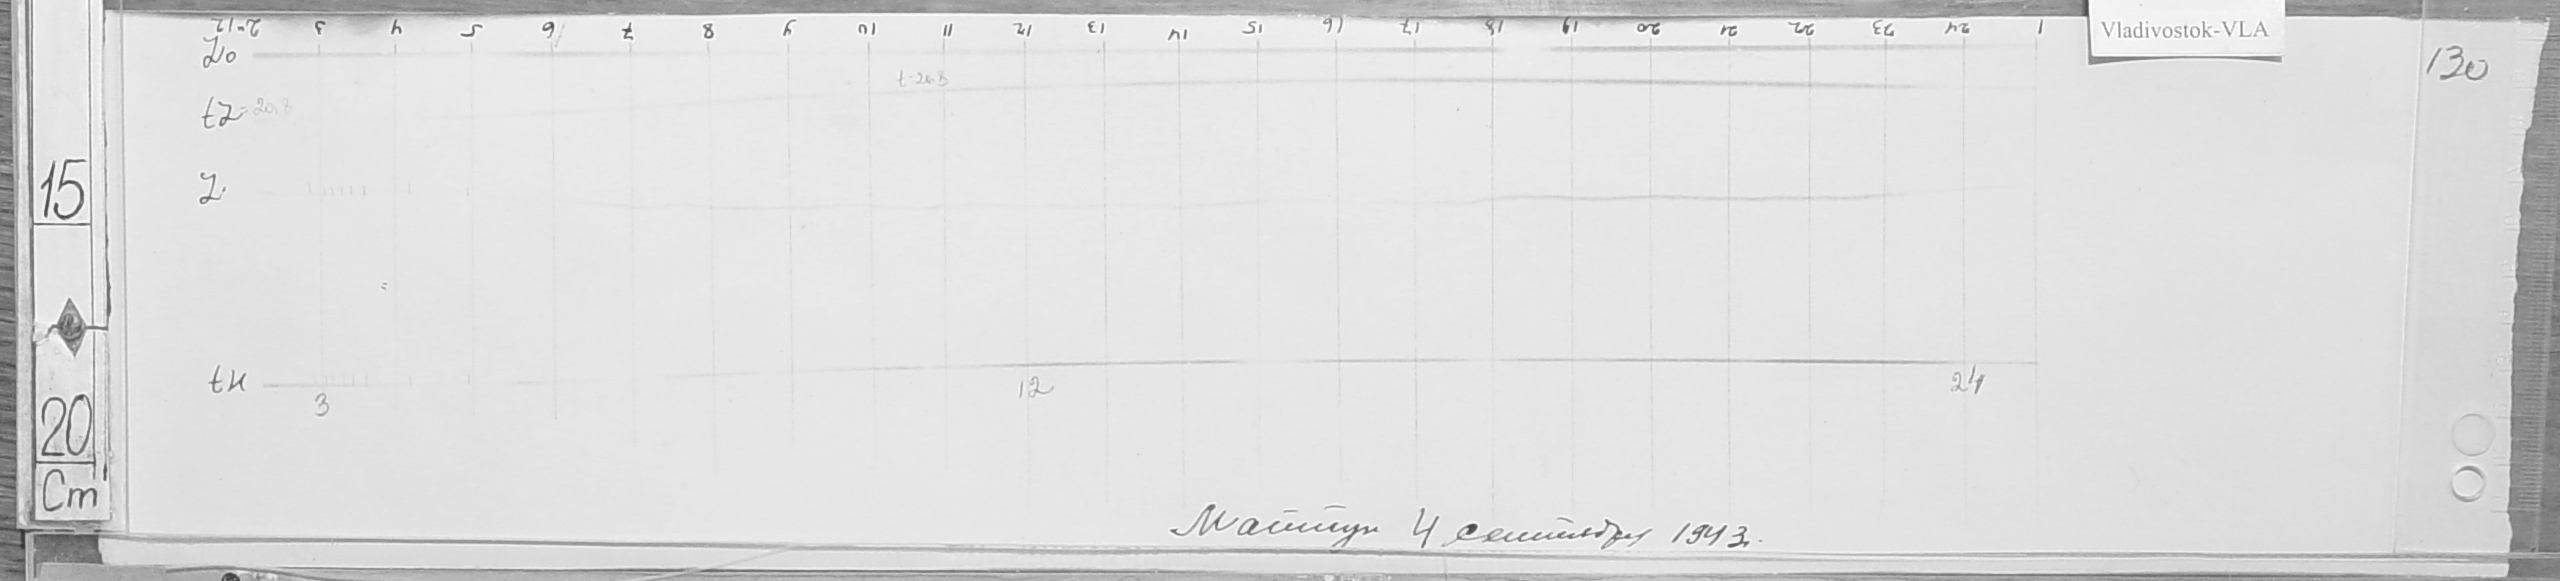 2-12 3 4 5 6 7 8 9 10 11 12 13 14 15 16 17 18 19 20 21 22 23 24 1
Vladivostok-VLA
130
Z₀
t=20.8
tZ=20.8
Z
15
tH
3 12 24
20
Cm
4 сентября 1943.